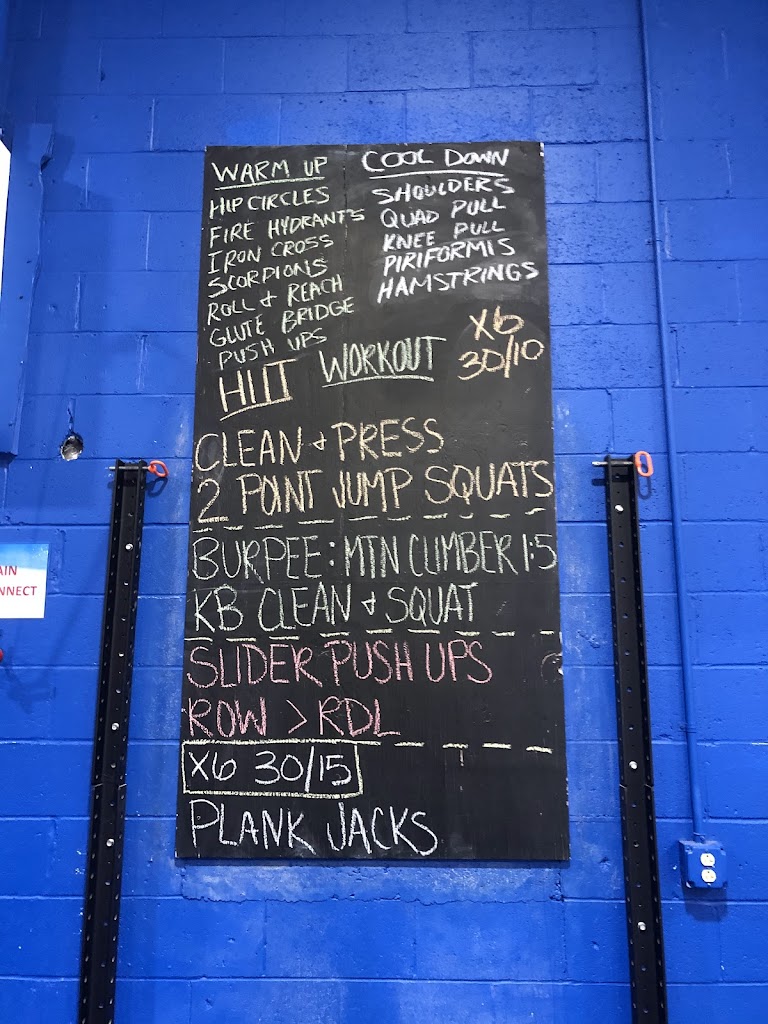 WARM UP
HIP CIRCLES
FIRE HYDRANTS
IRON CROSS
SCORPIONS
ROLL & REACH
GLUTE BRIDGE
PUSH UPS
COOL DOWN
SHOULDERS
QUAD PULL
KNEE PULL
PIRIFORMIS
HAMSTRINGS
HIIT WORKOUT X6
30/10
CLEAN & PRESS
2 POINT JUMP SQUATS
BURPEE: MTN CLIMBER 1:5
KB CLEAN & SQUAT
SLIDER PUSH UPS
ROW > RDL
X6 30/15
PLANK JACKS
AIN
NNECT